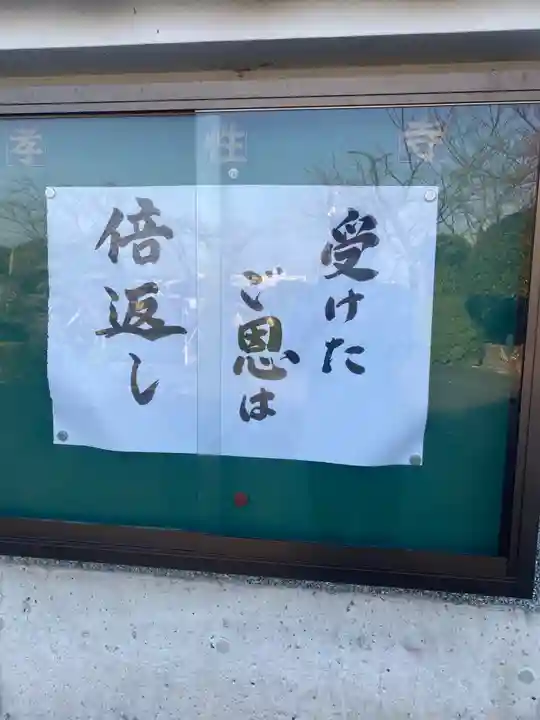 孝性寺
受けた
ご恩は
倍返し